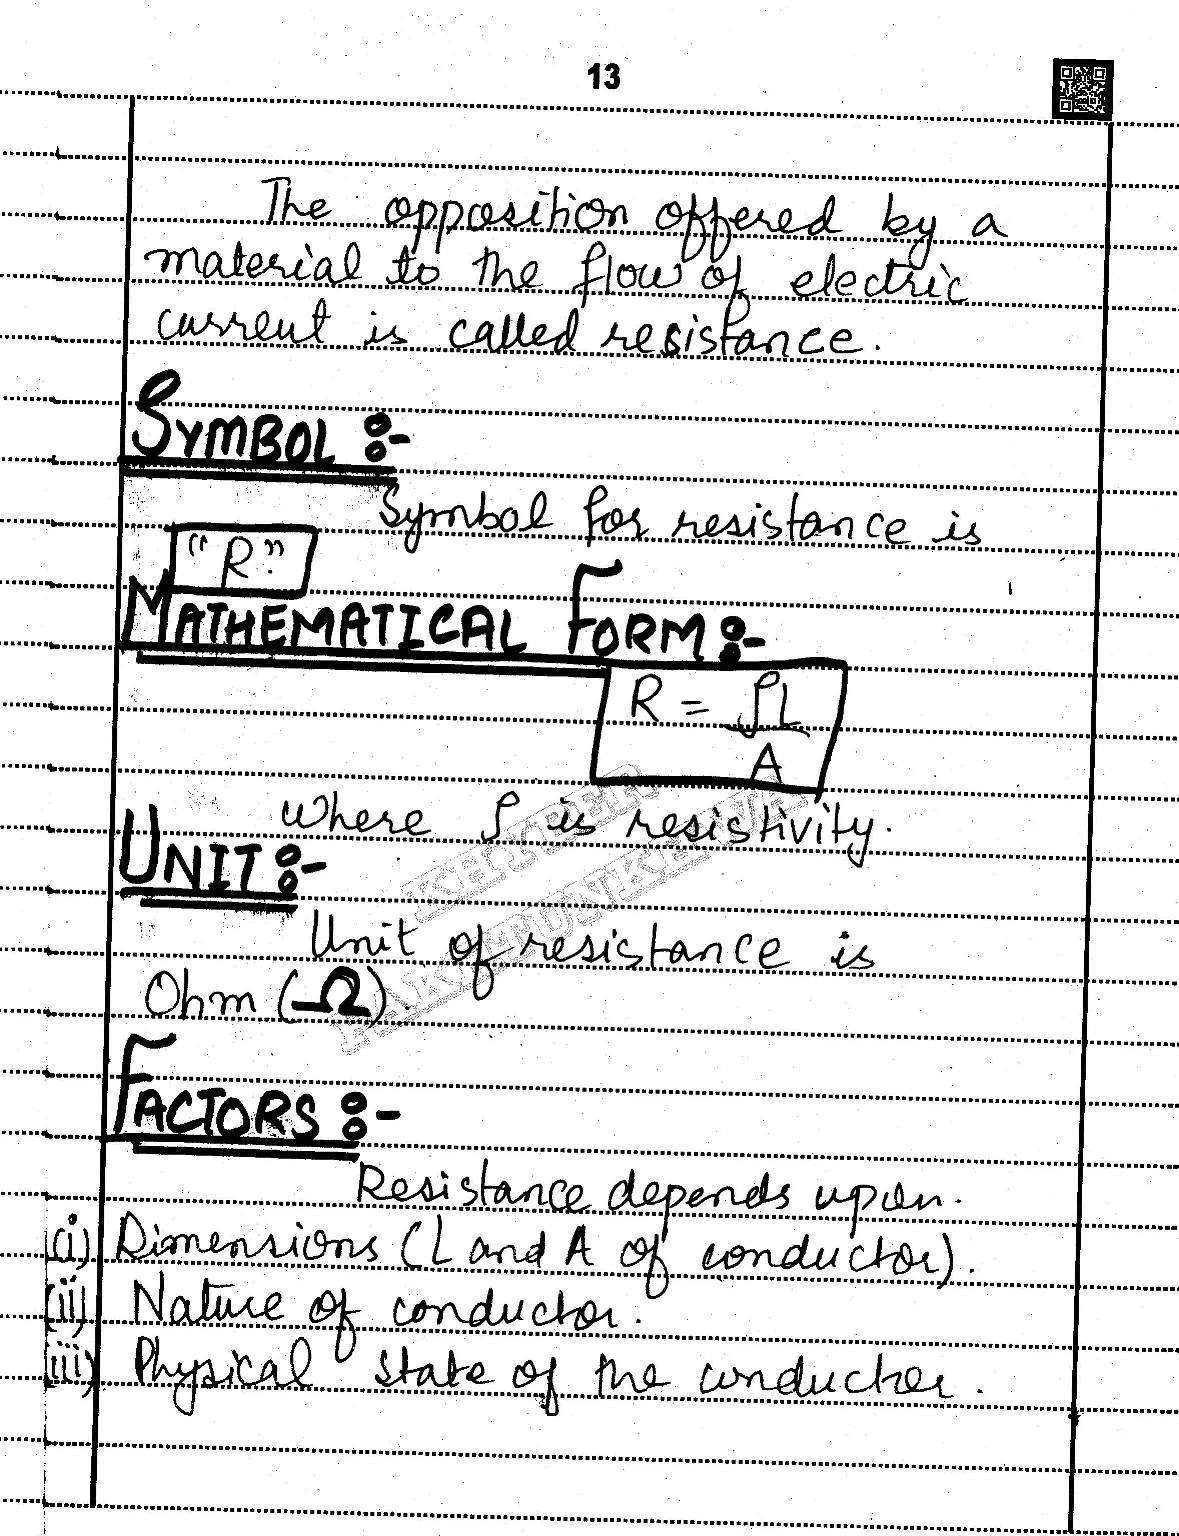 13
The opposition offered by a
material to the flow of electric
current is called resistance.
SYMBOL :-
Symbol for resistance is
"R"
MATHEMATICAL FORM :-
R = ρL
A
where ρ is resistivity.
UNIT :-
Unit of resistance is
Ohm (Ω).
FACTORS :-
Resistance depends upon.
(i) Dimensions (L and A of conductor).
(ii) Nature of conductor.
(iii) Physical state of the conductor.
KHYBER
PAKHTUNKHWA